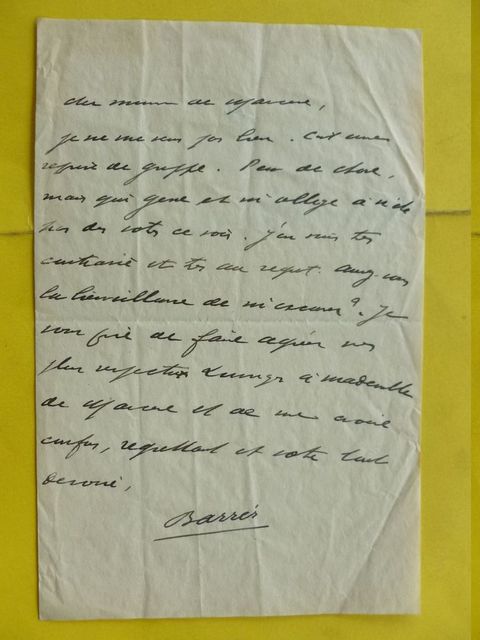 cher monsieur de
je ne me sens pas bien. C'est une
reprise de grippe. Peu de chose,
mais qui gêne et m'oblige à n'être
pas des vôtres ce soir. J'en suis très
contrarié et très au regret. Aurez-vous
la bienveillance de m'excuser? Je
vous prie de faire agréer mes
plus respectueux hommages à mademoiselle
de et de me croire
confus, regrettant et votre tout
dévoué,
Barrès